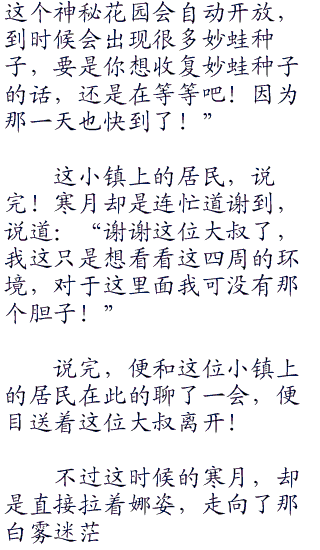 这个神秘花园会自动开放，
到时候会出现很多妙蛙种
子，要是你想收复妙蛙种子
的话，还是在等等吧！因为
那一天也快到了！”
这小镇上的居民，说
完！寒月却是连忙道谢到，
说道：“谢谢这位大叔了，
我这只是想看看这四周的环
境，对于这里面我可没有那
个胆子！”
说完，便和这位小镇上
的居民在此的聊了一会，便
目送着这位大叔离开！
不过这时候的寒月，却
是直接拉着娜姿，走向了那
白雾迷茫